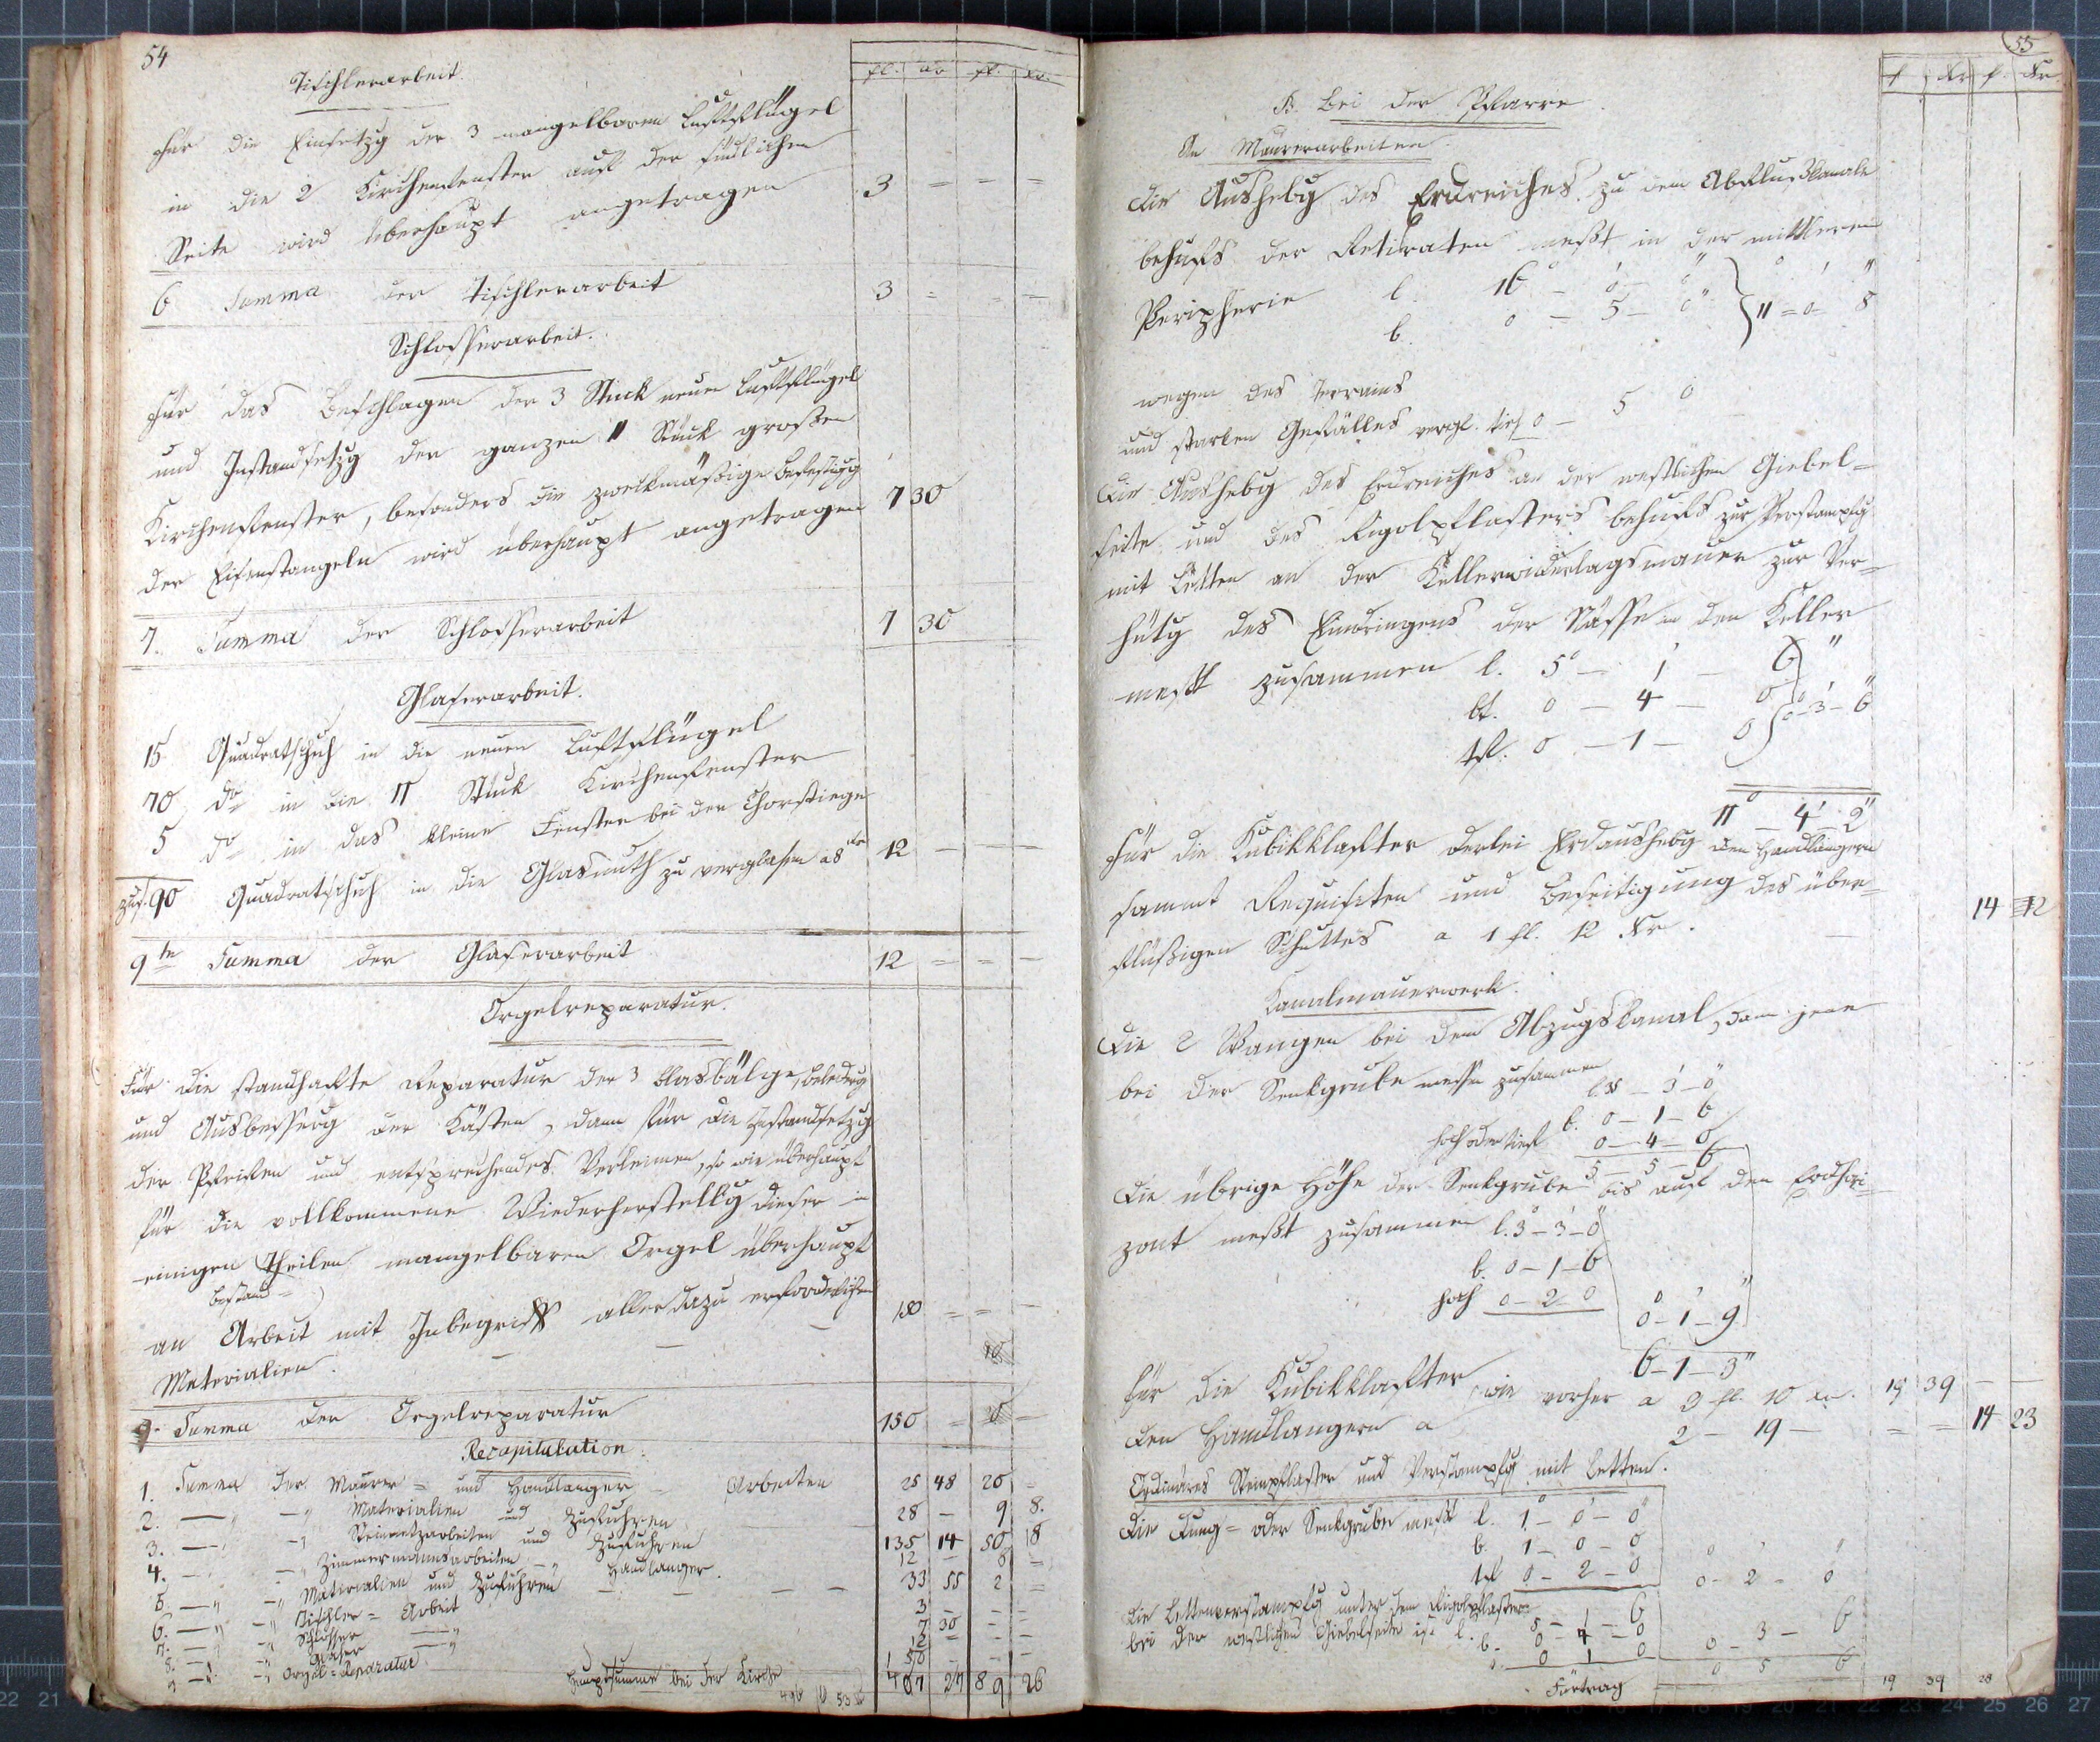 54
Tischlerarbeit.
fl. kr fl. kr.
Für die Einsetzg der 3 mangelbaren Luftflügel
in die 2 Kirchenfenster auf der südlichen
Seite wird überhaupt angetragen 3 — — —
6 Summa der Tischlerarbeit 3 = = —
Schlosserarbeit.
Für das Beschlagen der 3 Stück neuen Luftflügel
und Instandsetzg der ganzen 11 Stück großen
Kirchenfenster, besonders die zweckmäßige Befestigg
der Eisenstangeln wird überhaupt angetragen 7 30
7. Summa der Schlosserarbeit 7 30
Glaserarbeit.
15 Quadratschuh in die neuen Luftflügel
70 do in die 11 Stück Kirchenfenster
5 do in das kleine Fenster bei der Chorstiege
zus. 90 Quadratschuh in die Glasnuth zu verglasen a 8 kr 12 — — —
9te Summa der Glaserarbeit 12 = = —
Orgelreparatur.
Für die standhafte Reparatur der 3 Blasbälge, Beledrug
und Ausbesserg der Kästen, dann für die Instandsetzg
der Pfeifen und entsprechendes Verleimen, so wie überhaupt
für die vollkommene Wiederherstellg dieser in
einigen Theilen mangelbaren Orgel überhaupt
Bestand=
an Arbeit mit Inbegriff aller dazu erforderlichen 150 = = —
Materialien.
9. Summa der Orgelreparatur 150 = —
Recapitulation.
1. Summa der Maurer= und Handlanger — Arbeiten 25 48 20 =
2. — " — " Materialien und Zufuhren 28 — 9 8.
3. — " — " Steinmetzarbeiten und Zufuhren 135 14 50 18
4. — " — " Zimmermannsarbeiten — " Handlanger. 12 — 8 =
5. — " — " Materialien und Zufuhren — — — 33 55 2 =
6. — " — " Tischler= Arbeit 3 — — =
7. — " — " Schlosser — " 7 30 — =
8. — " — " Glaser — " 12 = — —
9 — " — " Orgel=Reparatur 150 — — —
Hauptsumme bei der Kirche 407 27 89 26
55
f Kr f. Kr
B. Bei der Pfarre.
An Maurerarbeiten.
Die Aushebg des Erdreiches zu dem Abflußkanale
behufs der Retiraten meßt in der mittleren
Peripherie l. 16° — 0' — 0" } 11 = 0 — 8
b. 0 — 5 — 0"
wegen des Terrains
und starken Gefälles vergl. tief 0 — 5 0
Die Aushebg des Erdreiches an der westlichen Giebel=
seite und des Rigolpflasters behufs zur Verstampfg
mit Letten an der Kellerwiderlagsmauer zur Ver=
hütg des Eindringens der Nässe in den Keller
meßt zusammen l. 5° — 1 — 6"
bt. 0 — 4 — 0 } 0 — 3 — 6
tf. 0 — 1 — 0
11° — 4' — 2"
Für die Kubikklafter derlei Erdaushebg den Handlangern
sammt Requisiten und Beseitigung des über=
flüßigen Schuttes a 1 fl. 12 Kr. — 14 12
Kanalmauerwerk.
Die 2 Wangen bei dem Abzugskanal, dann jene
bei der Senkgrube messen zusammen
— 3 — 0"
b. 0 — 1 — 6
hoch oder tief 0 — 4 — 0
5 — 5 — 6
Die übrige Höhe der Senkgrube bis auf den Erdhori=
zont meßt zusammen l. 3° — 3' — 0"
b. 0 — 1 — 6
hoch 0 — 2 — 0
0° — 1' — 9"
6 — 1 — 3"
Für die Kubikklafter wie vorher a 3 fl. 10 kr. 19 39 — —
den Handlangern a 2 — 19 — = = 14 23
Ordinäres Steinpflaster und Verstampfg mit Letten.
Die Dung= oder Senkgrube meßt l. 1° — 0' — 0"
b. 1 — 0 — 0
tf 0 — 2 — 0 0 — 2 — 0
Die Lettenverstampfg unter dem Rigolpflaster
bei der westlichen Giebelseite ist l. 5 — 1 — 6
b. 0 — 4 — 0 0 — 3 — 6
0 1 0 0 5 6
Fürtrag 19 39 28